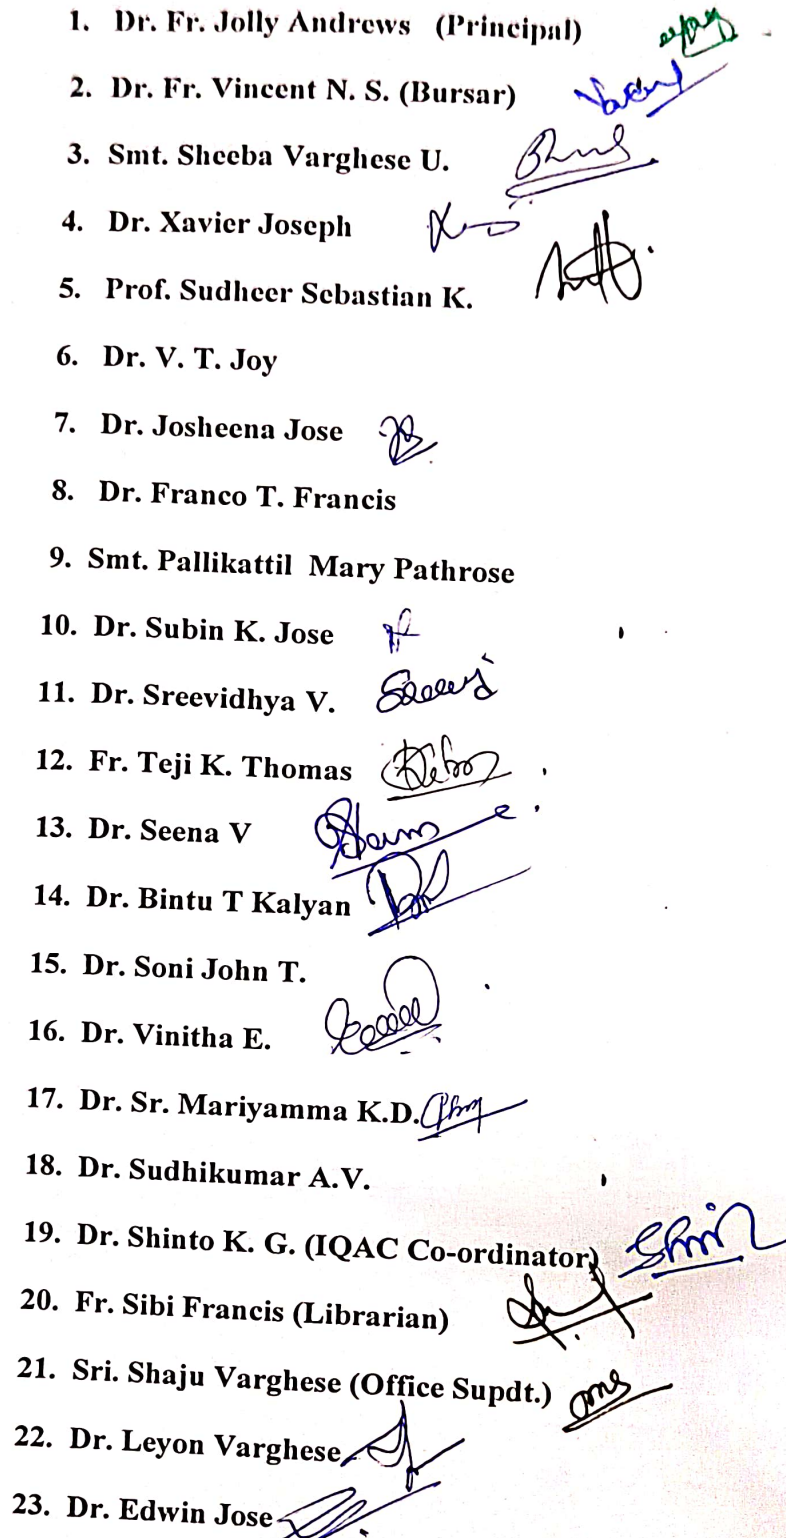 1. Dr. Fr. Jolly Andrews (Principal)
2. Dr. Fr. Vincent N. S. (Bursar)
3. Smt. Sheeba Varghese U.
4. Dr. Xavier Joseph
5. Prof. Sudheer Sebastian K.
6. Dr. V. T. Joy
7. Dr. Josheena Jose
8. Dr. Franco T. Francis
9. Smt. Pallikattil Mary Pathrose
10. Dr. Subin K. Jose
11. Dr. Sreevidhya V.
12. Fr. Teji K. Thomas
13. Dr. Seena V
14. Dr. Bintu T Kalyan
15. Dr. Soni John T.
16. Dr. Vinitha E.
17. Dr. Sr. Mariyamma K.D.
18. Dr. Sudhikumar A.V.
19. Dr. Shinto K. G. (IQAC Co-ordinator)
20. Fr. Sibi Francis (Librarian)
21. Sri. Shaju Varghese (Office Supdt.)
22. Dr. Leyon Varghese
23. Dr. Edwin Jose